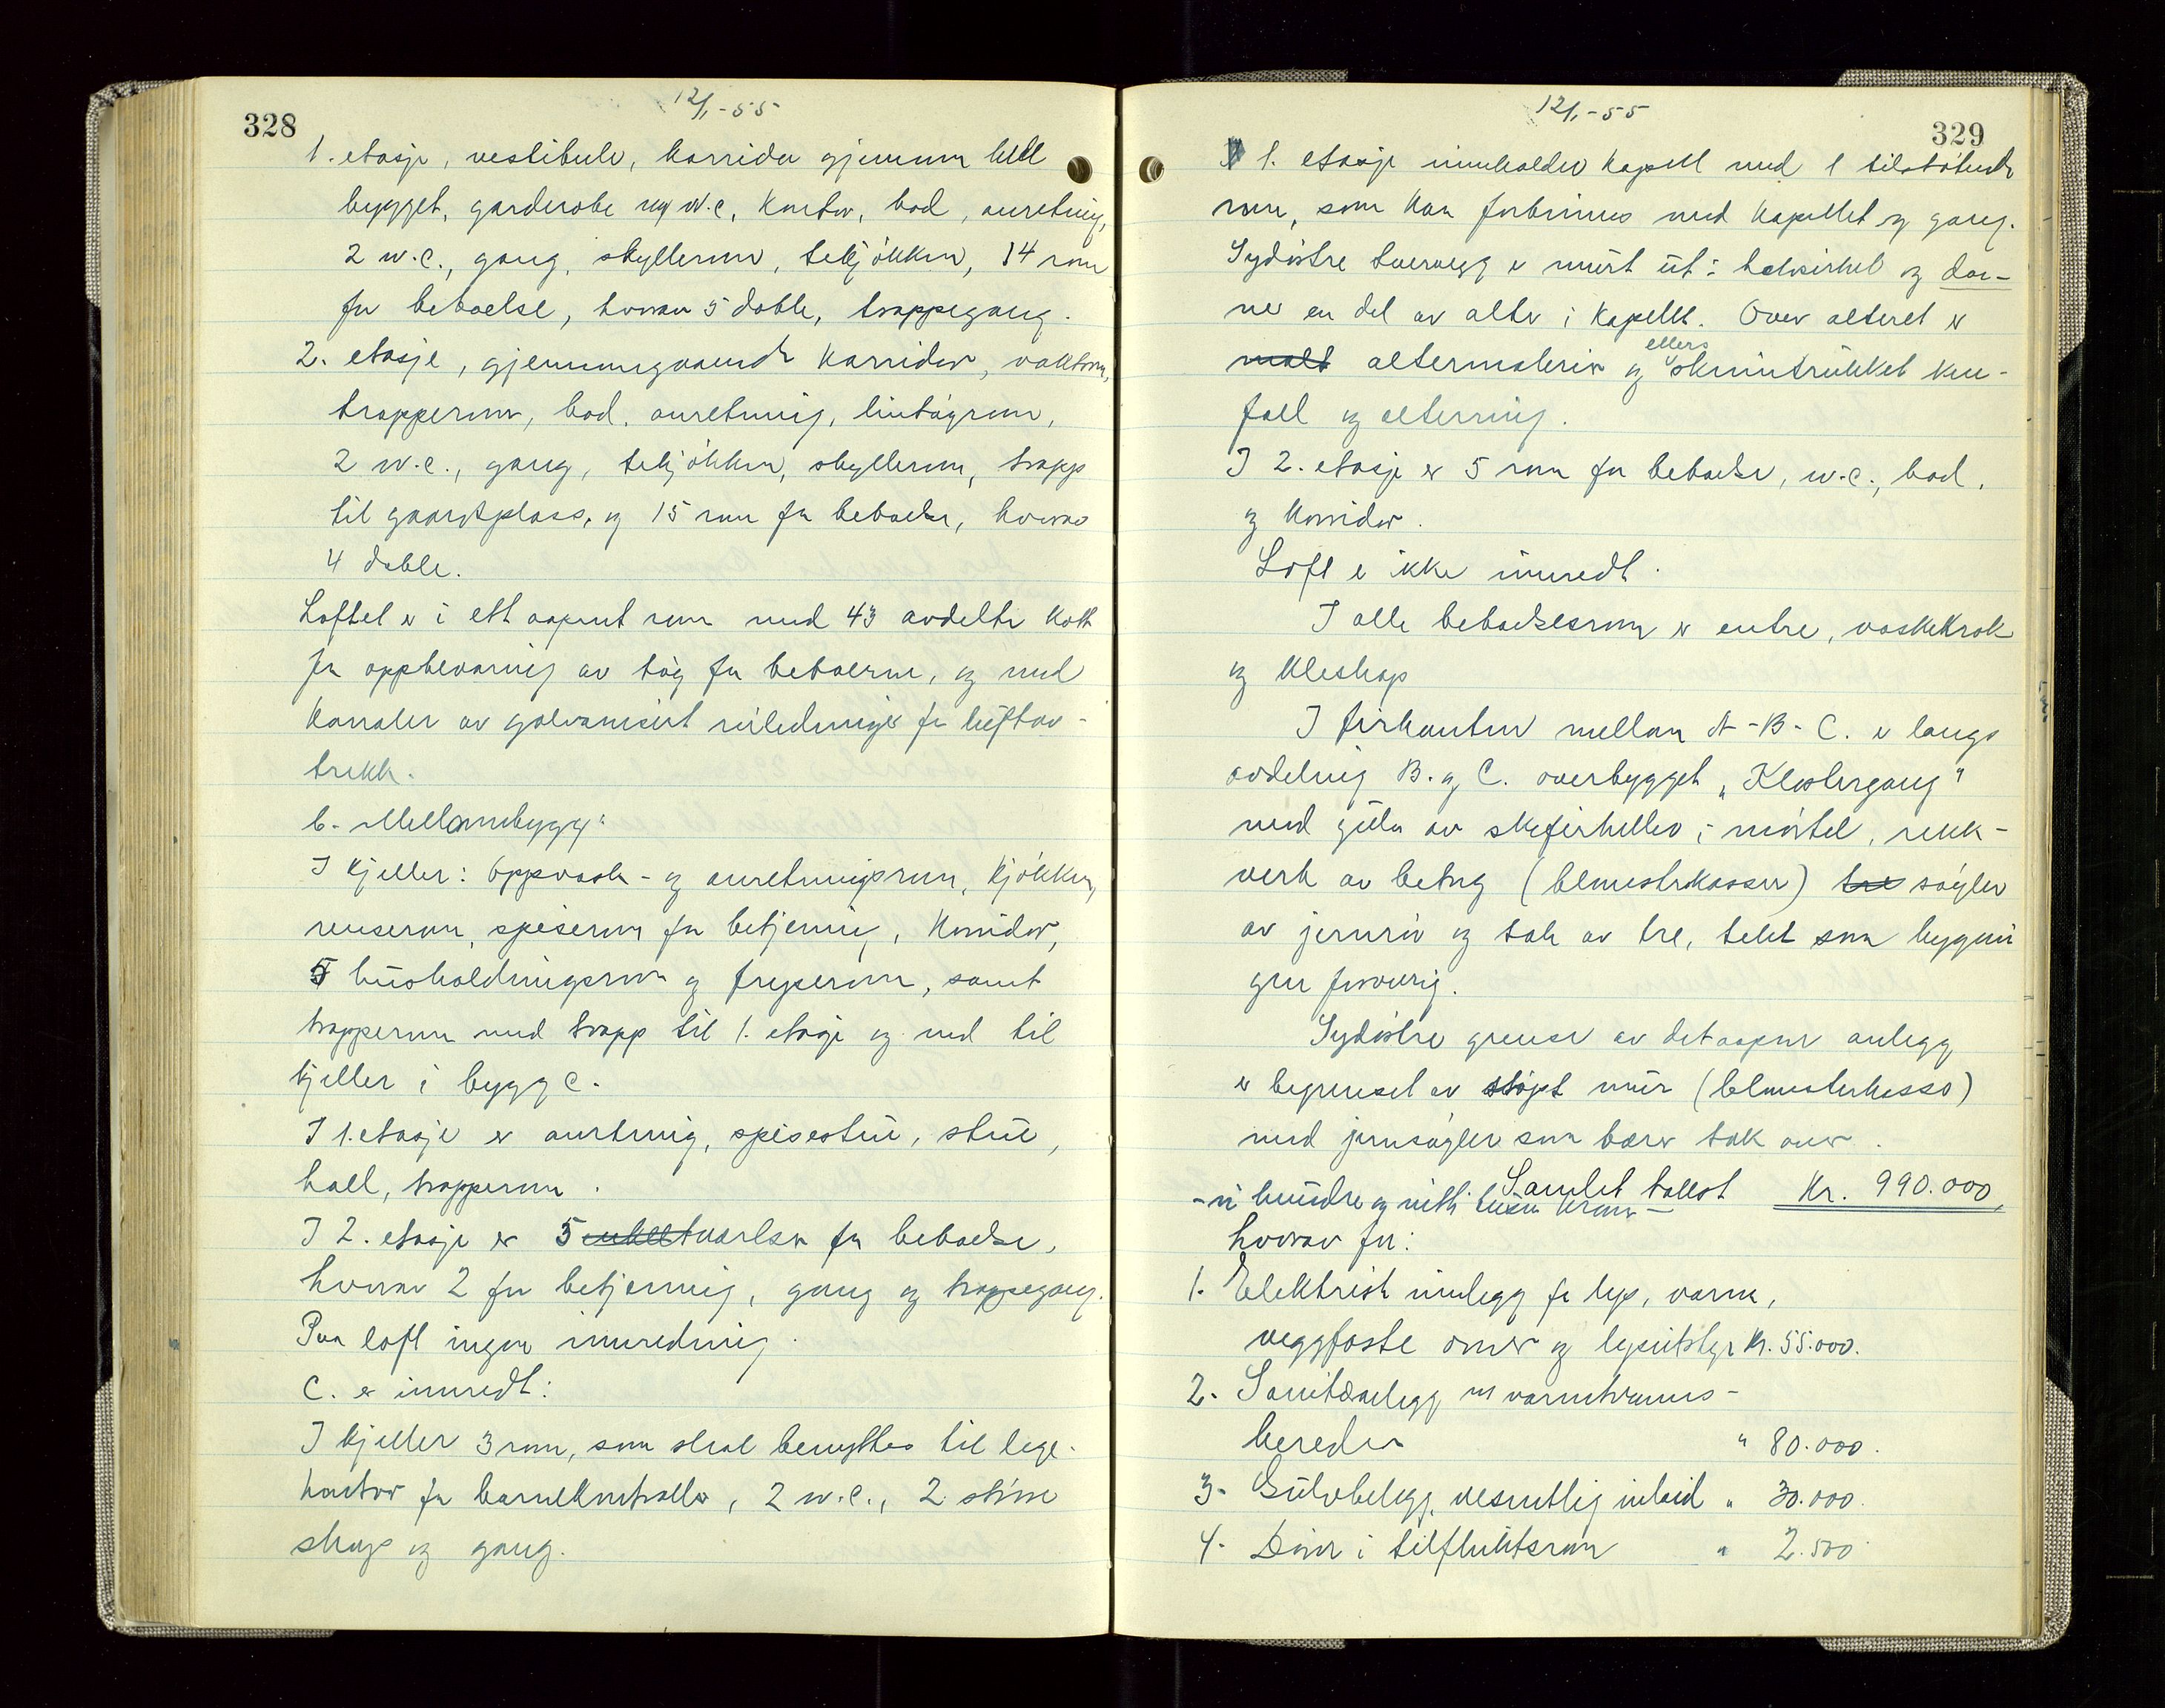 328
12/1-55
1. etasje, vestibule, korridor gjennom hele
bygget, garderobe og w.c, kontor, bad, anretning,
2 w.c., gang, skyllerom, tekjøkken, 14 rom
for beboelse, hvorav 5 doble, trappegang.
2. etasje, gjennomgaaende korridor, vaktrom,
trapperom, bad, anretning, lintøyrom,
2 w.c., gang, tekjøkken, skyllerom, trapp
til gaardsplass, og 15 rom for beboelse, hvorav
4 doble.
Loftet er i ett aapent rom med 43 avdelte kott
for oppbevaring av tøy for beboerne, og med
kanaler av galvanisert rørledninger for luftav-
trekk.
b. Mellombygg:
I kjeller: Oppvask- og anretningsrom, kjøkken,
renserom, spiserom for betjening, korridor,
5 husholdningsrom og fryserom, samt
trapperom med trapp til 1. etasje og ned til
kjeller i bygg C.
I 1. etasje er anretning, spisestue, stue,
hall, trapperom.
I 2. etasje er 5 enkelt værelser for beboelse,
hvorav 2 for betjening, gang og trappegang.
Paa loft ingen innredning.
C. er innredt:
I kjeller 3 rom, som skal benyttes til lege-
kontor for barnekontroller, 2 w.c., 2 større
skap og gang.
12/1-55
329
I 1. etasje inneholder kapell med 1 tilstøtende
rom, som kan forbinnes med kapellet og gang.
Sydøstre tvervegg er murt ut i halvsirkel og dan-
ner en del av alter i kapellet. Over alteret er
malt altermaleri og ellers skinntrukket kne-
fall og alterring.
I 2. etasje er 5 rom for beboelse, w.c., bad,
og korridor.
Loft er ikke innredt.
I alle beboelsesrom er entre, vaskekrok
og kleskap
I firkanten mellom A-B-C. er langs
avdeling B. og C. overbygget "Klostergang"
med gulv av skiferheller i mørtel, rekk-
verk av betong (blomsterkasser) tre søyler
av jernrør og tak av tre, tekt som bygnin
gen forøvrig.
Sydøstre grense av det aapne anlegg
er begrenset av støpt mur (blomsterkasse)
med jernsøyler som bærer tak over.
Samlet takst Kr. 990.000,
- ni hundre og nitti tusen kroner -
hvorav for:
1. Elektrisk innlegg for lys, varme,
veggfaste ovner og lysutstyr kr. 55.000.
2. Sanitæranlegg m varmtvanns-
bereder " 80.000.
3. Gulvbelegg, vesentlig inlaid " 30.000.
4. Dører i tilfluktsrom " 2.500